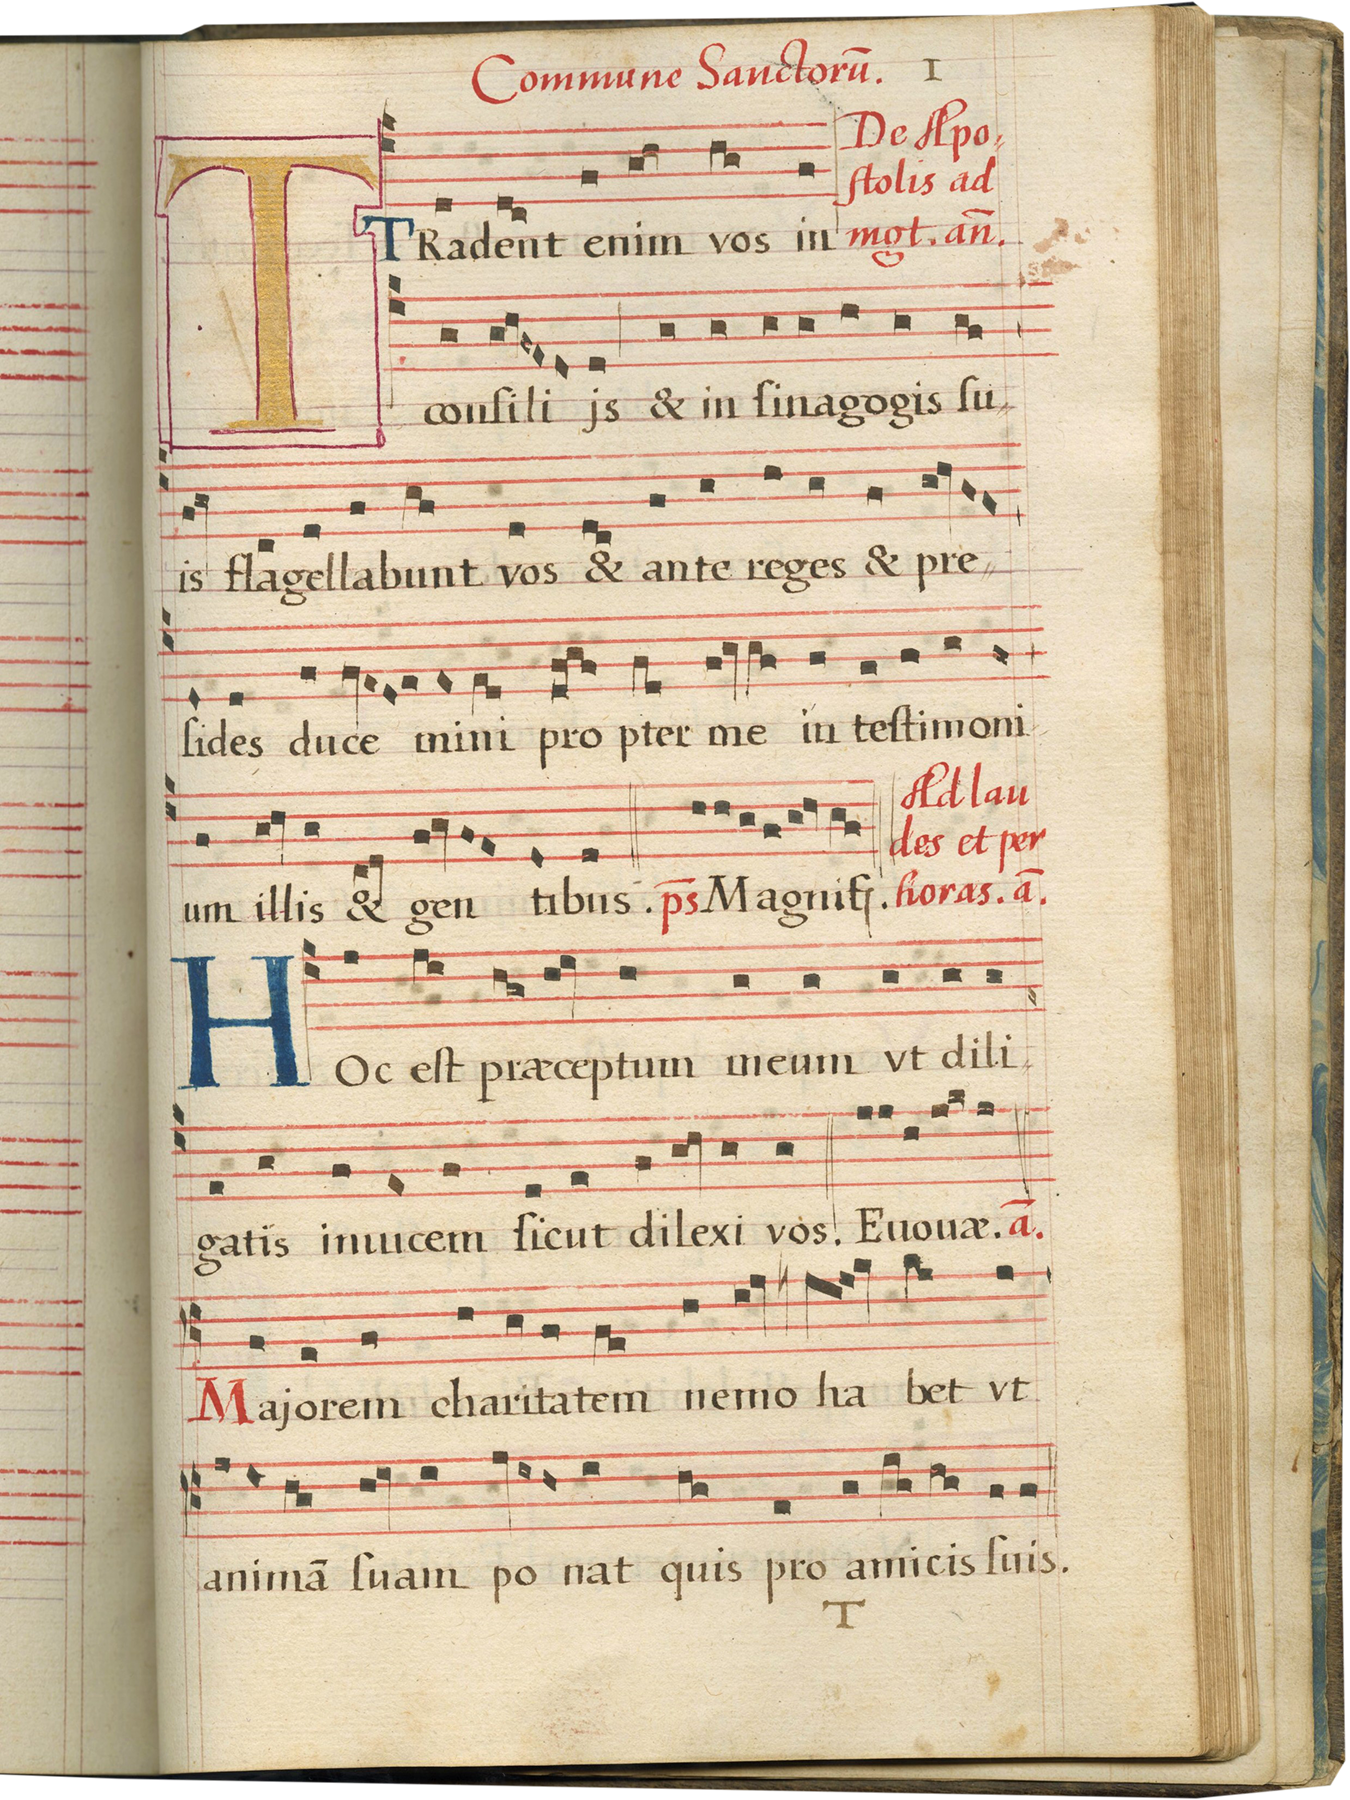 Commune Sanctorū. 1
De Apo,
stolis ad
mgt. añ.
T TRadent enim vos in
consili js & in sinagogis su,,
is flagellabunt vos & ante reges & pre,,
sides duce mini pro pter me in testimoni
um illis & gen tibus. p̄s Magnif.
Ad lau
des et per
horas. ā.
HOc est præceptum meum vt dili,
gatis inuicem sicut dilexi vos. Euouæ. ā.
Majorem charitatem nemo ha bet vt
animā suam po nat quis pro amicis suis.
T